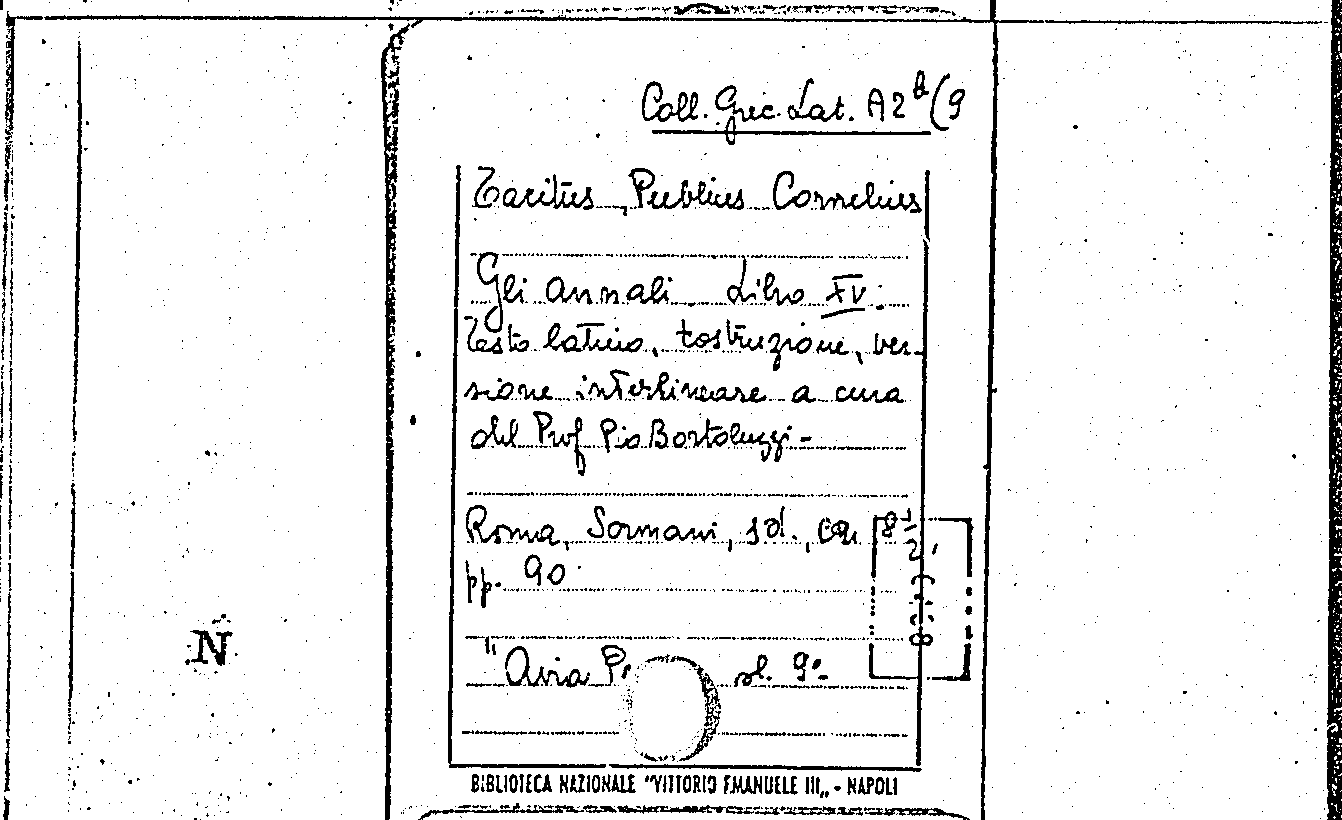 Coll. Grec. Lat. A2 b(9
Tacitus, Publius Cornelius
Gli annali. Libro XV.
Testo latino, costruzione, ver-
sione interlineare a cura
del Prof Pio Bortoluzzi -
Roma, Sormani, s.d.,
pp. 90.
"Avia vol. 9º
N
BIBLIOTECA NAZIONALE "VITTORIO EMANUELE III„ - NAPOLI